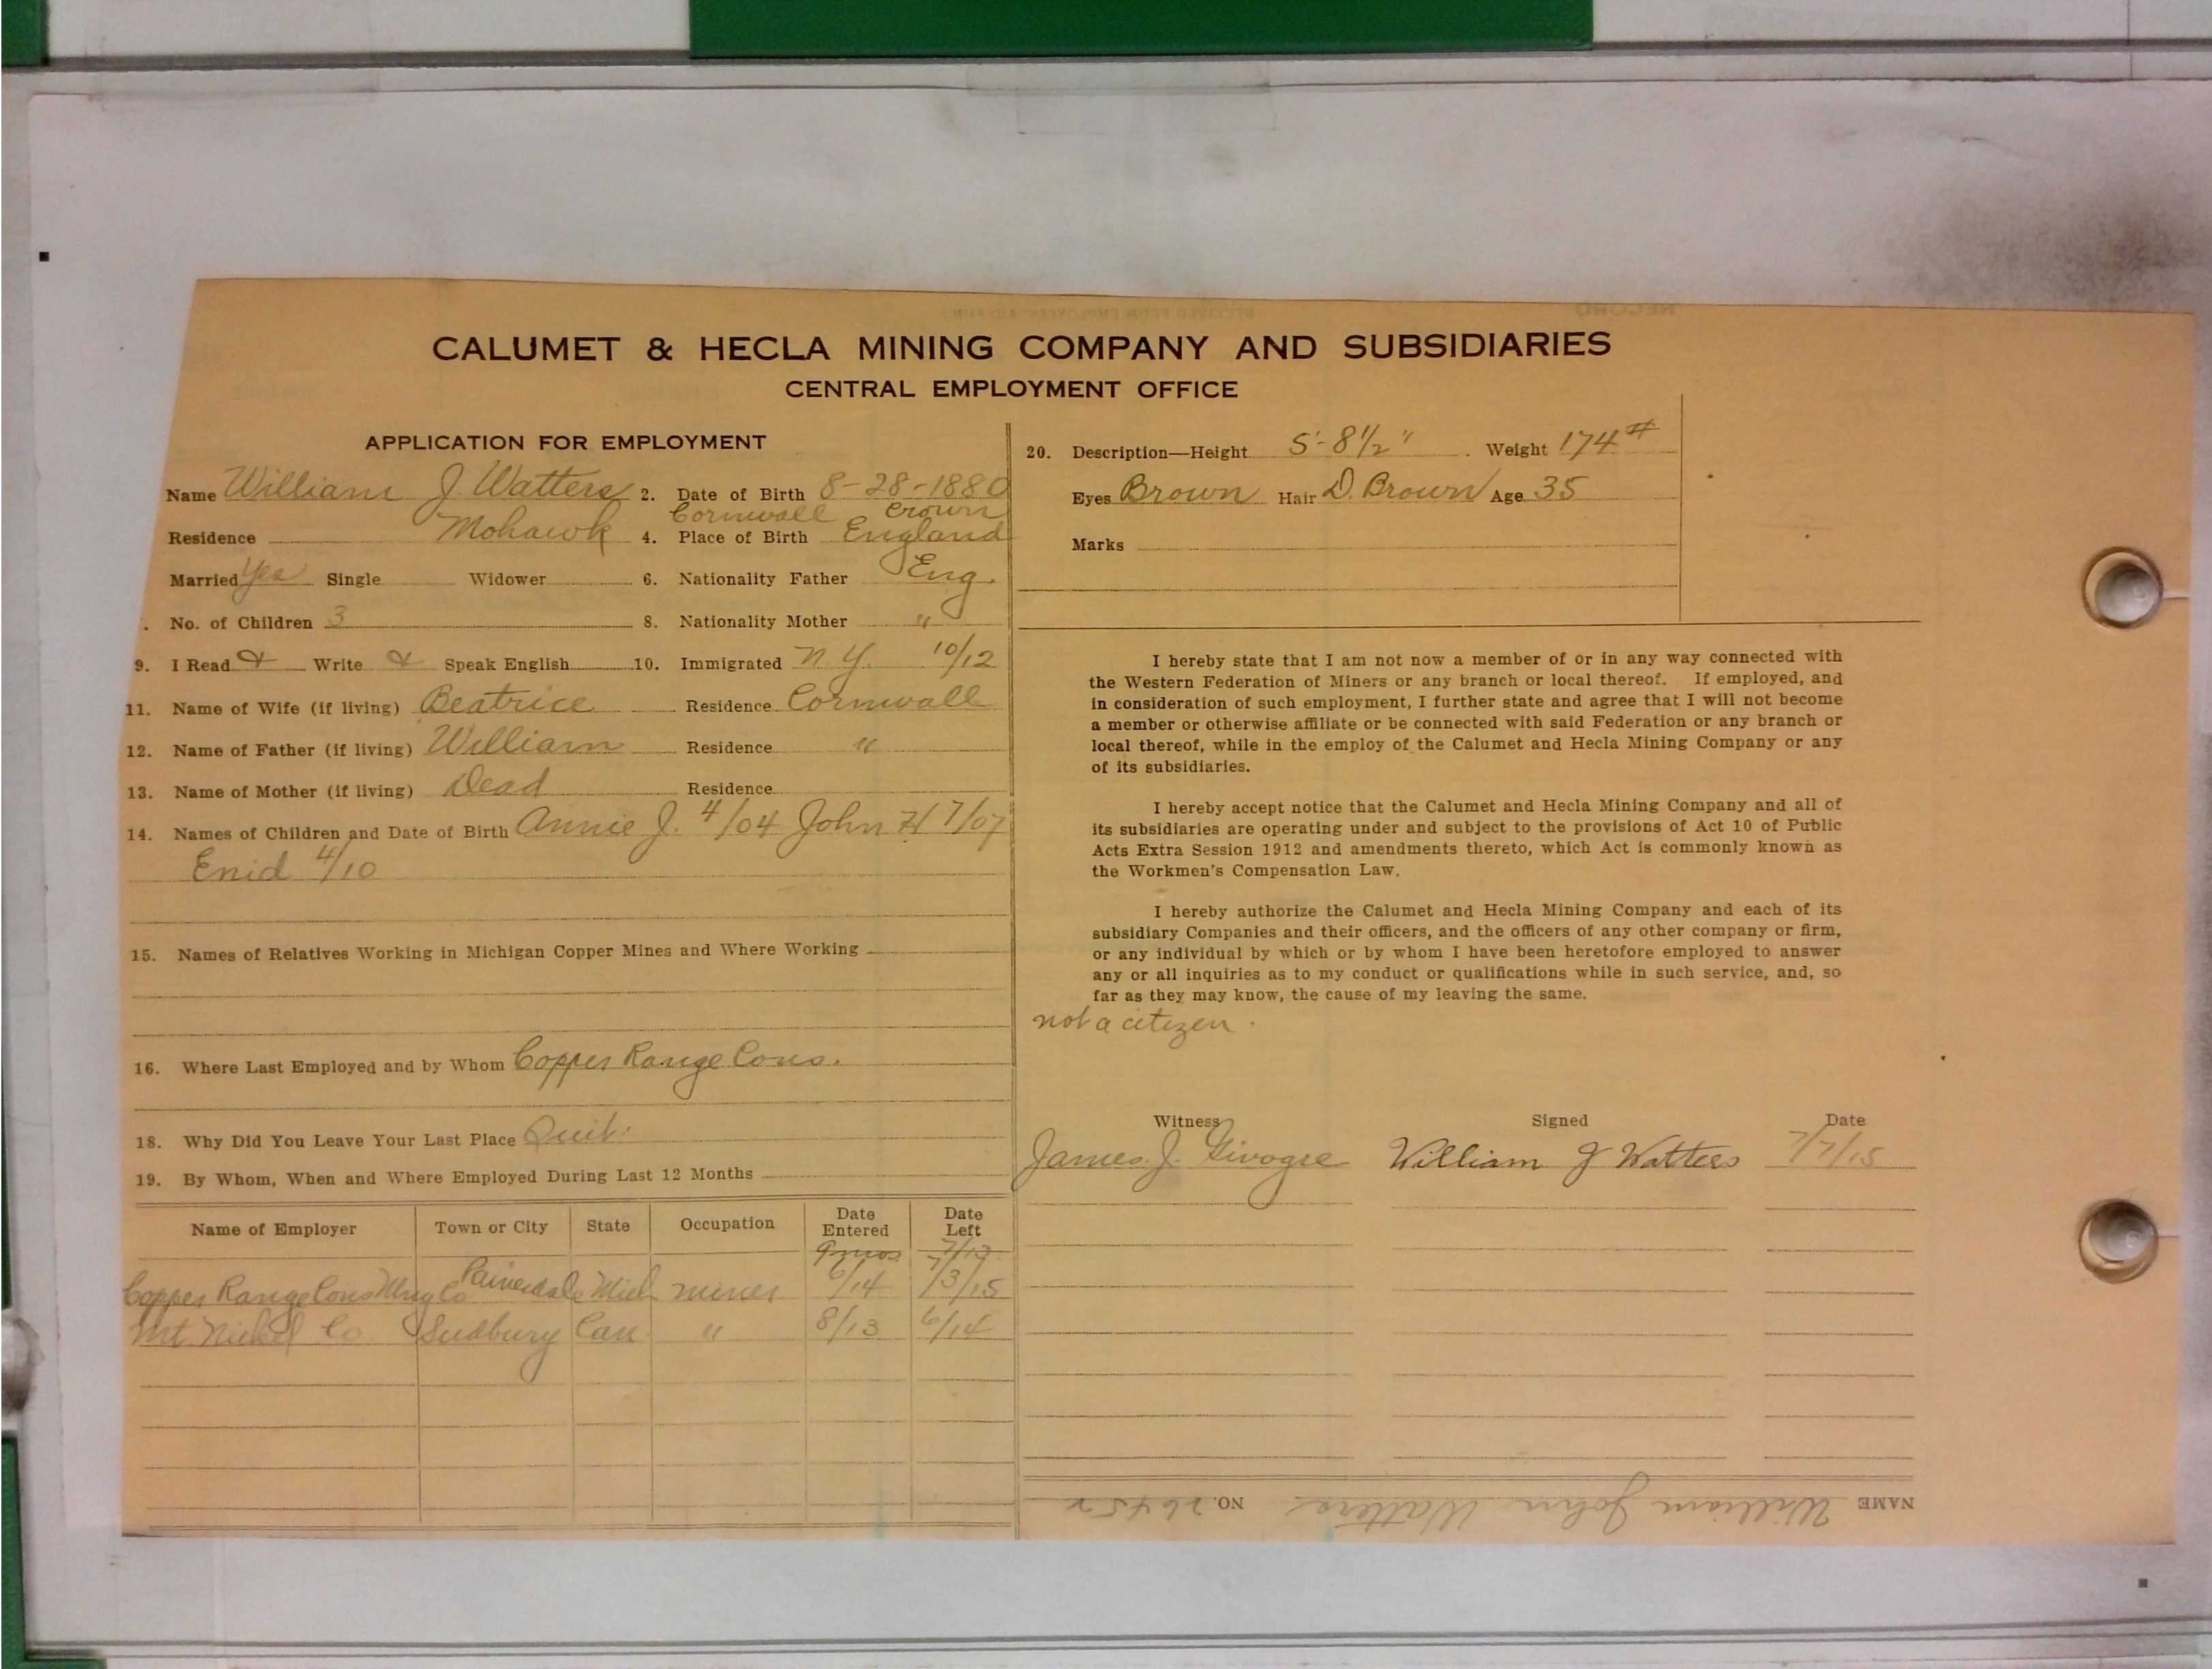 CALUMET & HECLA MINING COMPANY AND SUBSIDIARIES
CENTRAL EMPLOYMENT OFFICE
APPLICATION FOR EMPLOYMENT
Name William J. Watters 2. Date of Birth 8-28-1880
Cornwall Crown
Residence Mohawk 4. Place of Birth England
Married Yes Single Widower 6. Nationality Father Eng.
No. of Children 3 8. Nationality Mother "
9. I Read & Write & Speak English 10. Immigrated N.Y. 10/12
11. Name of Wife (if living) Beatrice Residence Cornwall
12. Name of Father (if living) William Residence "
13. Name of Mother (if living) Dead Residence
14. Names of Children and Date of Birth Annie J. 4/04 John H 7/07
Enid 4/10
15. Names of Relatives Working in Michigan Copper Mines and Where Working
16. Where Last Employed and by Whom Copper Range Cons.
18. Why Did You Leave Your Last Place Quit.
19. By Whom, When and Where Employed During Last 12 Months
Name of Employer Town or City State Occupation Date Entered Date Left
9 mos. 7/13
Copper Range Cons Mng Co Painesdale Mich miner 6/14 7/3/15
Mt Nickel Co. Sudbury Can " 8/13 6/14
20. Description—Height 5'-8 1/2" Weight 174#
Eyes Brown Hair D. Brown Age 35
Marks
I hereby state that I am not now a member of or in any way connected with
the Western Federation of Miners or any branch or local thereof. If employed, and
in consideration of such employment, I further state and agree that I will not become
a member or otherwise affiliate or be connected with said Federation or any branch or
local thereof, while in the employ of the Calumet and Hecla Mining Company or any
of its subsidiaries.
I hereby accept notice that the Calumet and Hecla Mining Company and all of
its subsidiaries are operating under and subject to the provisions of Act 10 of Public
Acts Extra Session 1912 and amendments thereto, which Act is commonly known as
the Workmen's Compensation Law.
I hereby authorize the Calumet and Hecla Mining Company and each of its
subsidiary Companies and their officers, and the officers of any other company or firm,
or any individual by which or by whom I have been heretofore employed to answer
any or all inquiries as to my conduct or qualifications while in such service, and, so
far as they may know, the cause of my leaving the same.
not a citizen.
Witness Signed Date
James J. William J Watters 7/7/15
NAME William John Watters NO. 26452